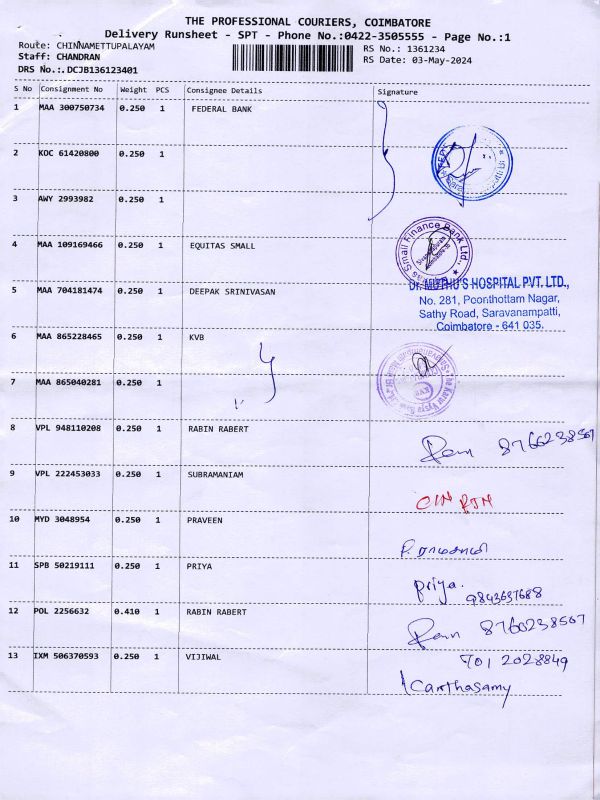 THE PROFESSIONAL COURIERS, COIMBATORE
Delivery Runsheet - SPT - Phone No.:0422-3505555 - Page No.:1
Route: CHINNAMETTUPALAYAM RS No.: 1361234
Staff: CHANDRAN RS Date: 03-May-2024
DRS No.:.DCJB136123401
S No Consignment No Weight PCS Consignee Details Signature
1 MAA 300750734 0.250 1 FEDERAL BANK
2 KOC 61420800 0.250 1
3 AWY 2993982 0.250 1
4 MAA 109169466 0.250 1 EQUITAS SMALL
Small Finance Bank Ltd.
5 MAA 704181474 0.250 1 DEEPAK SRINIVASAN
Dr. MUTHU'S HOSPITAL PVT. LTD.,
No. 281, Poonthottam Nagar,
Sathy Road, Saravanampatti,
Coimbatore - 641 035.
6 MAA 865228465 0.250 1 KVB
7 MAA 865040281 0.250 1
8 VPL 948110208 0.250 1 RABIN RABERT
9 VPL 222453033 0.250 1 SUBRAMANIAM
10 MYD 3048954 0.250 1 PRAVEEN
11 SPB 50219111 0.250 1 PRIYA
Priya.
9843637688
12 POL 2256632 0.410 1 RABIN RABERT
8760238507
13 IXM 506370593 0.250 1 VIJIWAL
701 2028849
Canthasamy